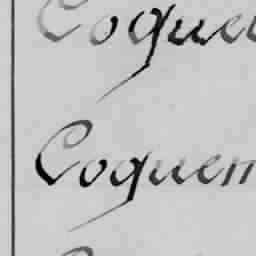 Coque
Coquem